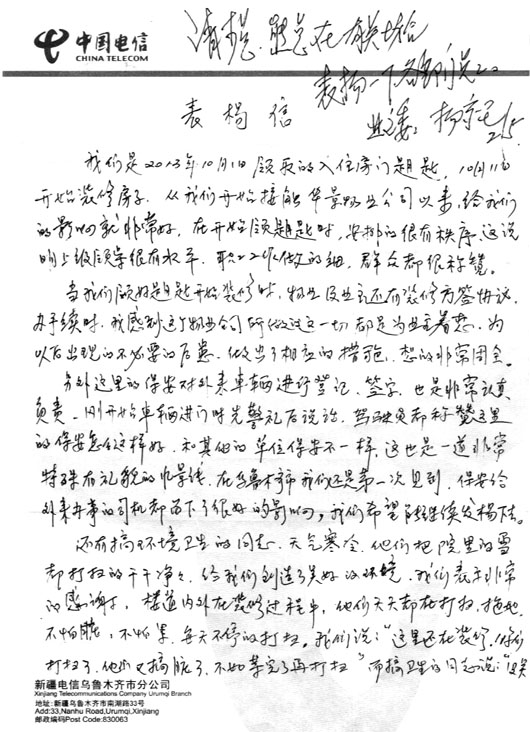 中国电信
CHINA TELECOM
请杨、熊总在有关场合
表扬一下各部门员工
业主委：
2/5
表杨信
我们是2013年10月1日领取的入住房门题匙，10月11日
开始装修房子，从我们开始接触华景物业公司以来，给我们
的影响就非常好，在开始领题匙时，安排的很有秩序，这说
明上级领导很有水平，职工工作做的细，群众都很称赞。
当我们领好题匙开始装修时，物业及业主还有装修方签协议，
办手续时，我感到这个物业公司所做这一切都是为业主着想，为
以后出现的不必要的后患，做出了相应的措施，想的非常周全。
另外这里的保安对外来车辆进行登记、签字，也是非常认真
负责，刚开始车辆进门时先敬礼后说话，驾驶员都称赞这里
的保安怎么这样好，和其他的单位保安不一样，这也是一道非常
特殊有礼貌的风景线，在乌鲁木齐市我们还是第一次见到，保安给
外来办事的司机都留下了很好的影响，我们希望继续发杨下去。
还有搞环境卫生的同志，天气寒冷，他们把院里的雪
都打扫的干干净净，给我们创造了美好的环境，我们表于非常
的感谢，楼道内外在装修过程中，他们天天都在打扫，拖地，
不怕脏，不怕累，每天不停的打扫，我们说："这里还在装修，你们
打扫了，他们又搞脏了，不如等完了再打扫"而搞卫生的同志说："没关
新疆电信乌鲁木齐市分公司
Xinjiang Telecommunications Company Urumqi Branch
地址:新疆乌鲁木齐市南湖路33号
Add:33,Nanhu Road,Urumqi,Xinjiang
邮政编码Post Code:830063